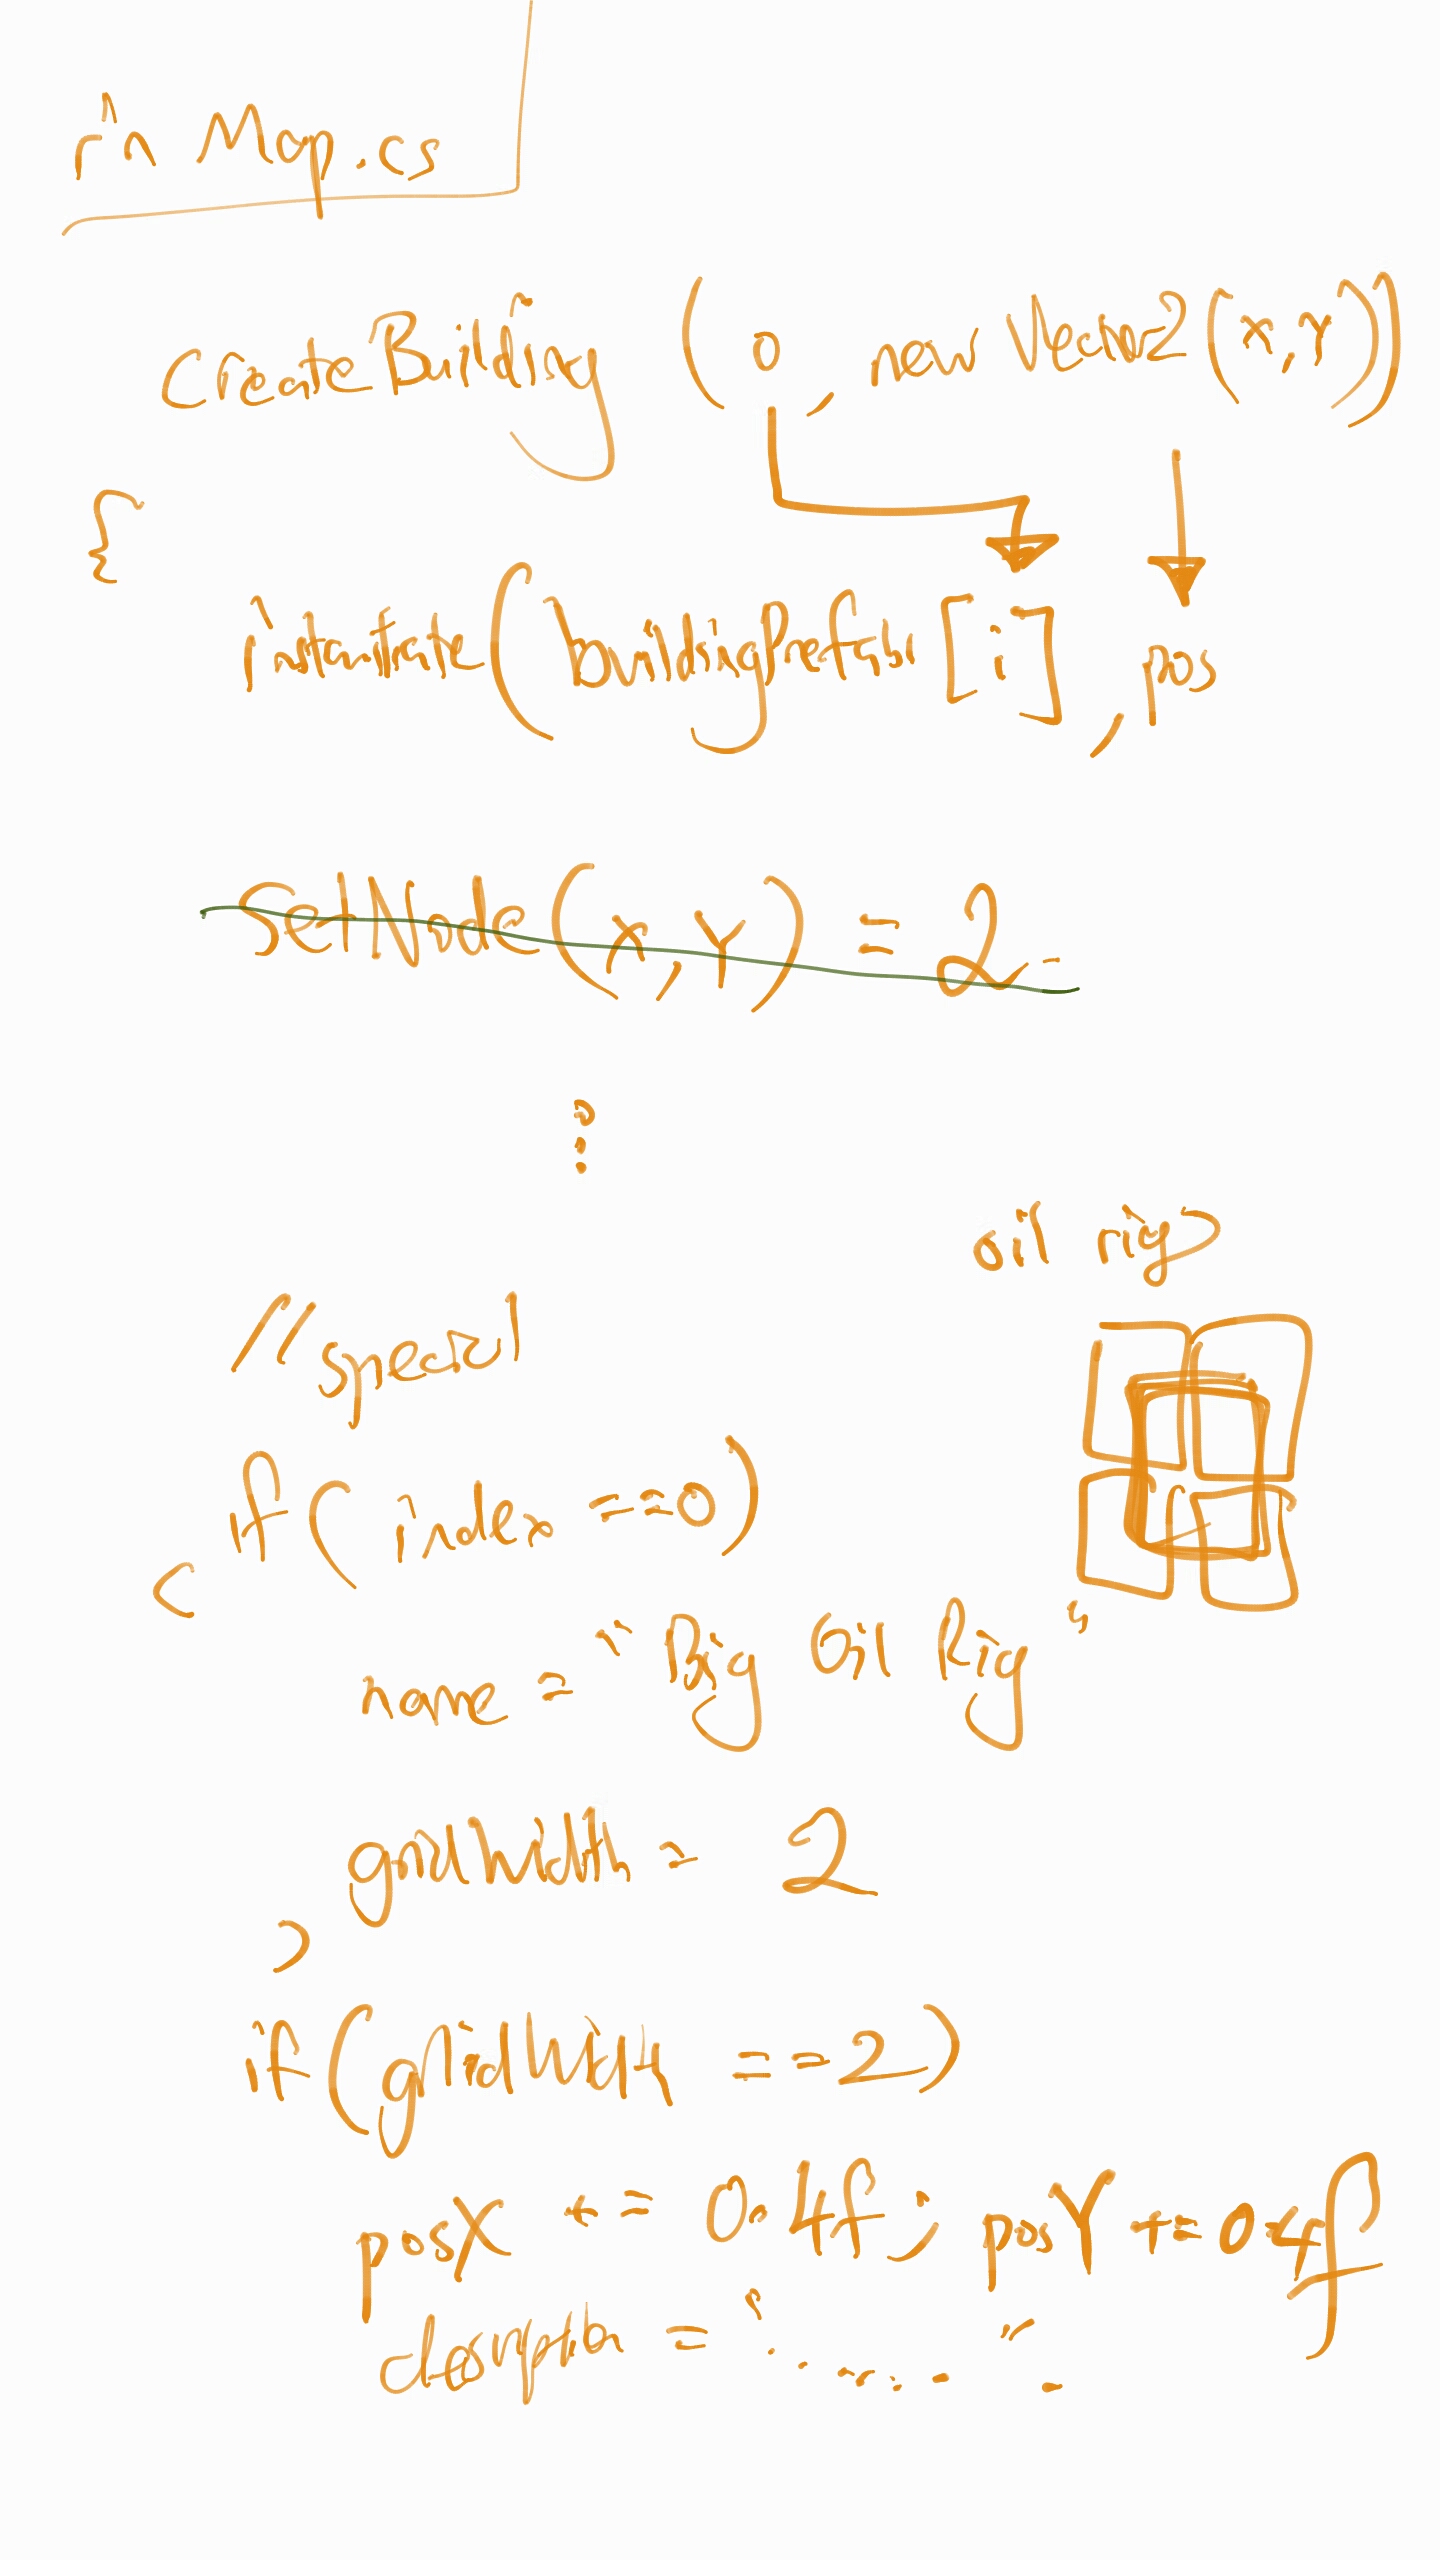 in Map.cs
CreateBuilding (0, new Vector2(x,Y))
{
instantiate(buildingPrefabs[i], pos
SetNode(x,Y) = 2
:
oil rig
//special
if(index ==0)
{
name = "Big Oil Rig"
gridWidth = 2
}
if(gridWidth ==2)
posX += 0.4f; posY += 0.4f
description = "......".